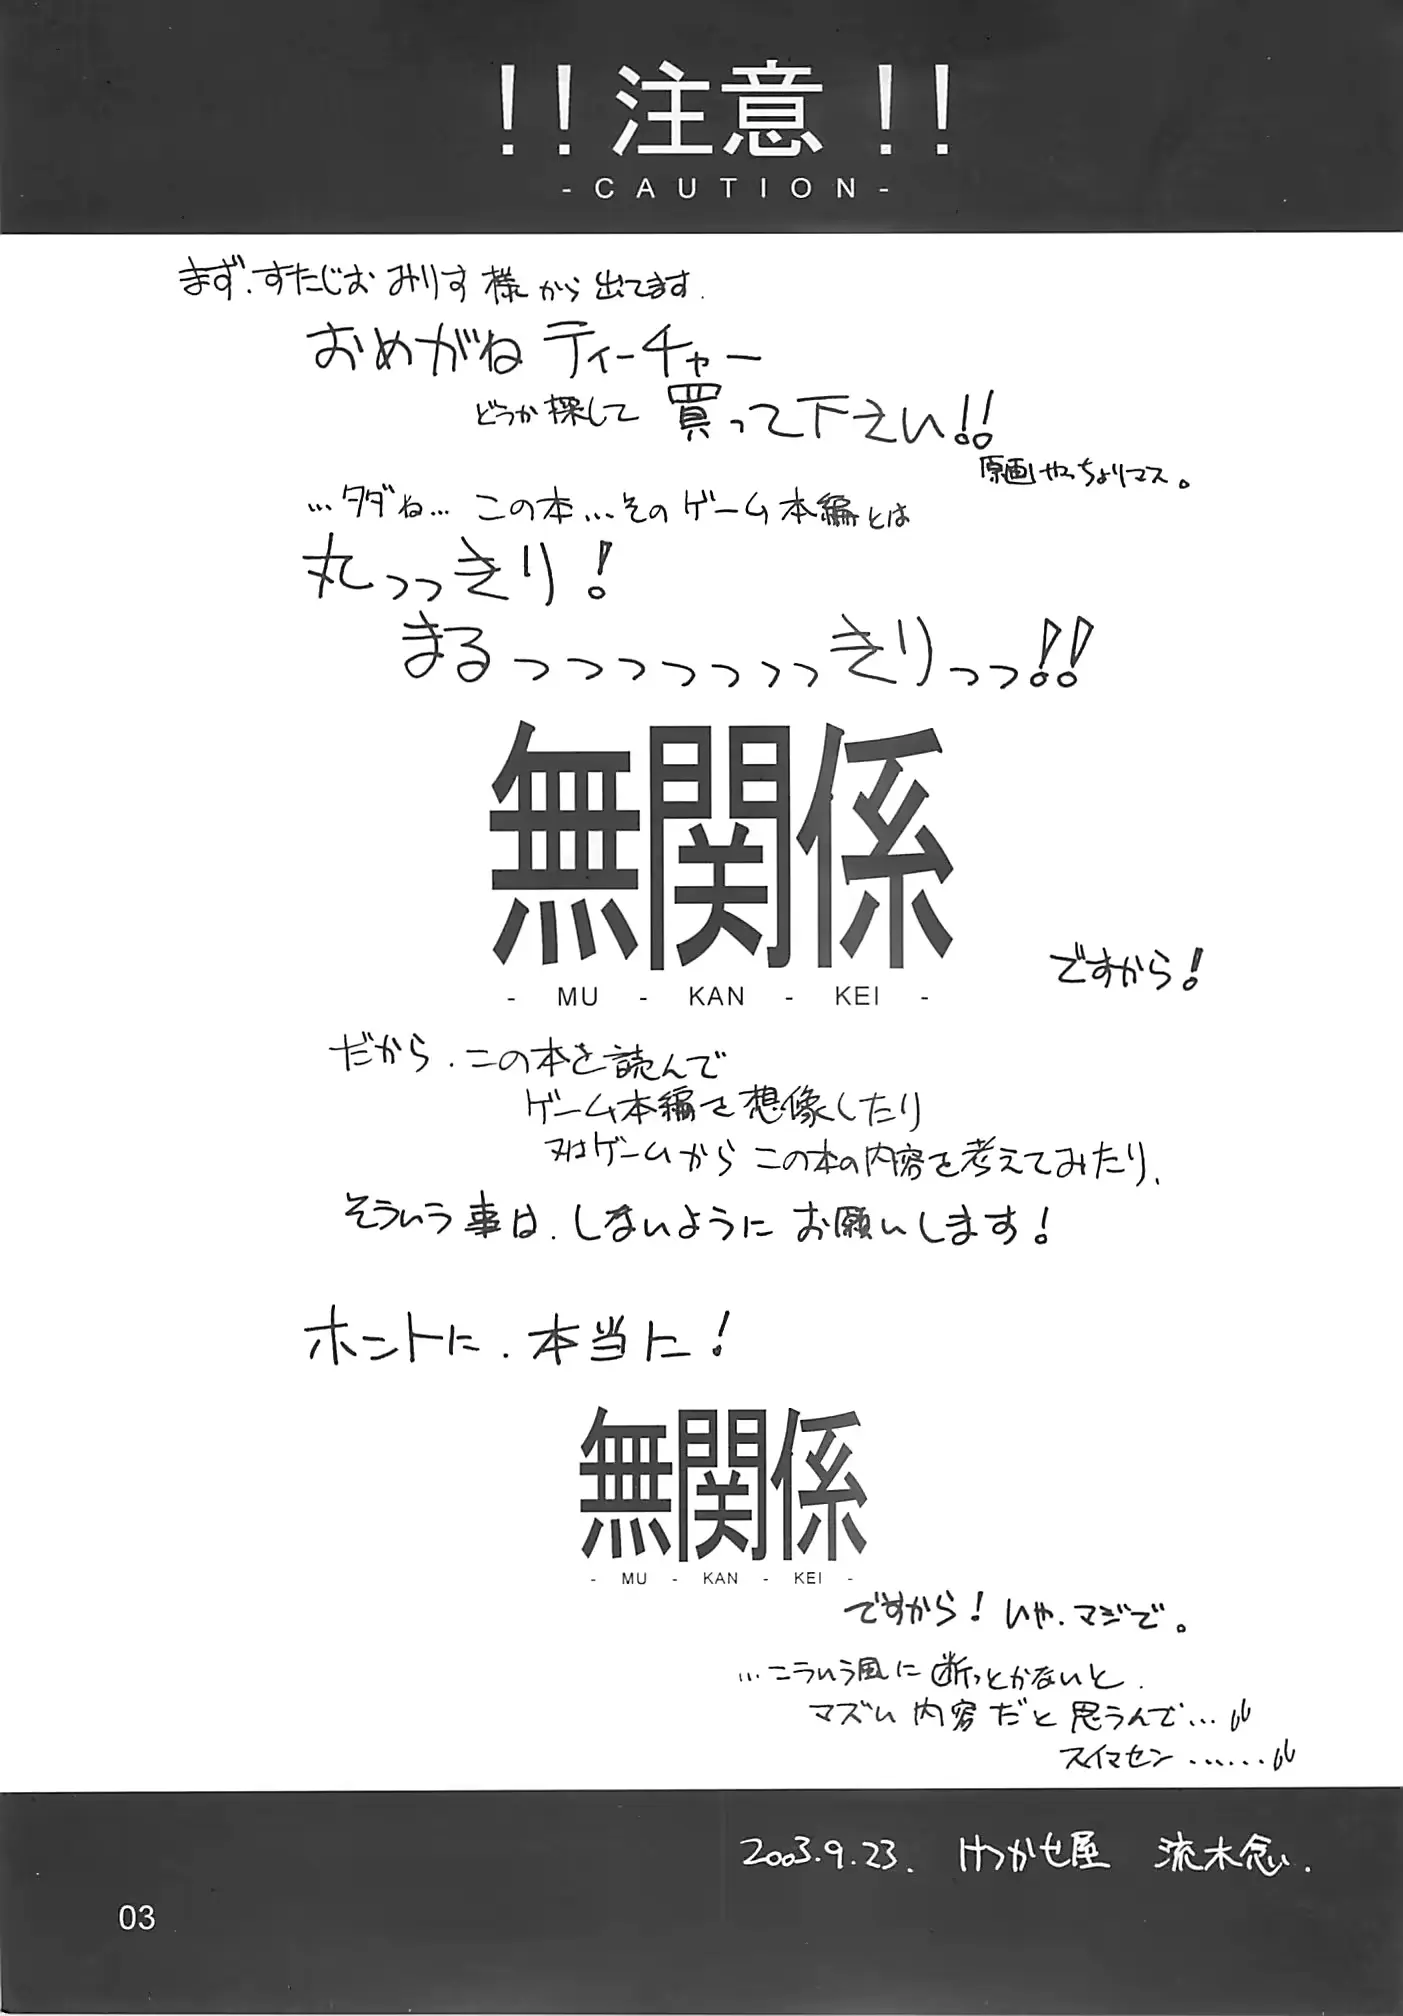 !!注意!!
-CAUTION-
まず、すたじおみりす様から出てます
おめがねティーチャー
どうか探して買って下さい!!
原画やっちょりマス。
…タダね…この本…そのゲーム本編とは
丸っっきり!
まるっっっっっっっきりっっ!!
無関係
- MU - KAN - KEI -
ですから!
だから、この本を読んで
ゲーム本編を想像したり
又はゲームからこの本の内容を考えてみたり、
そういう事は、しないようにお願いします!
ホントに、本当に!
無関係
- MU - KAN - KEI -
ですから!いや、マジで。
…こういう風に断っとかないと、
マズい内容だと思うんで…
スイマセン……
2003.9.23. けつかせ屋 流木念い.
03